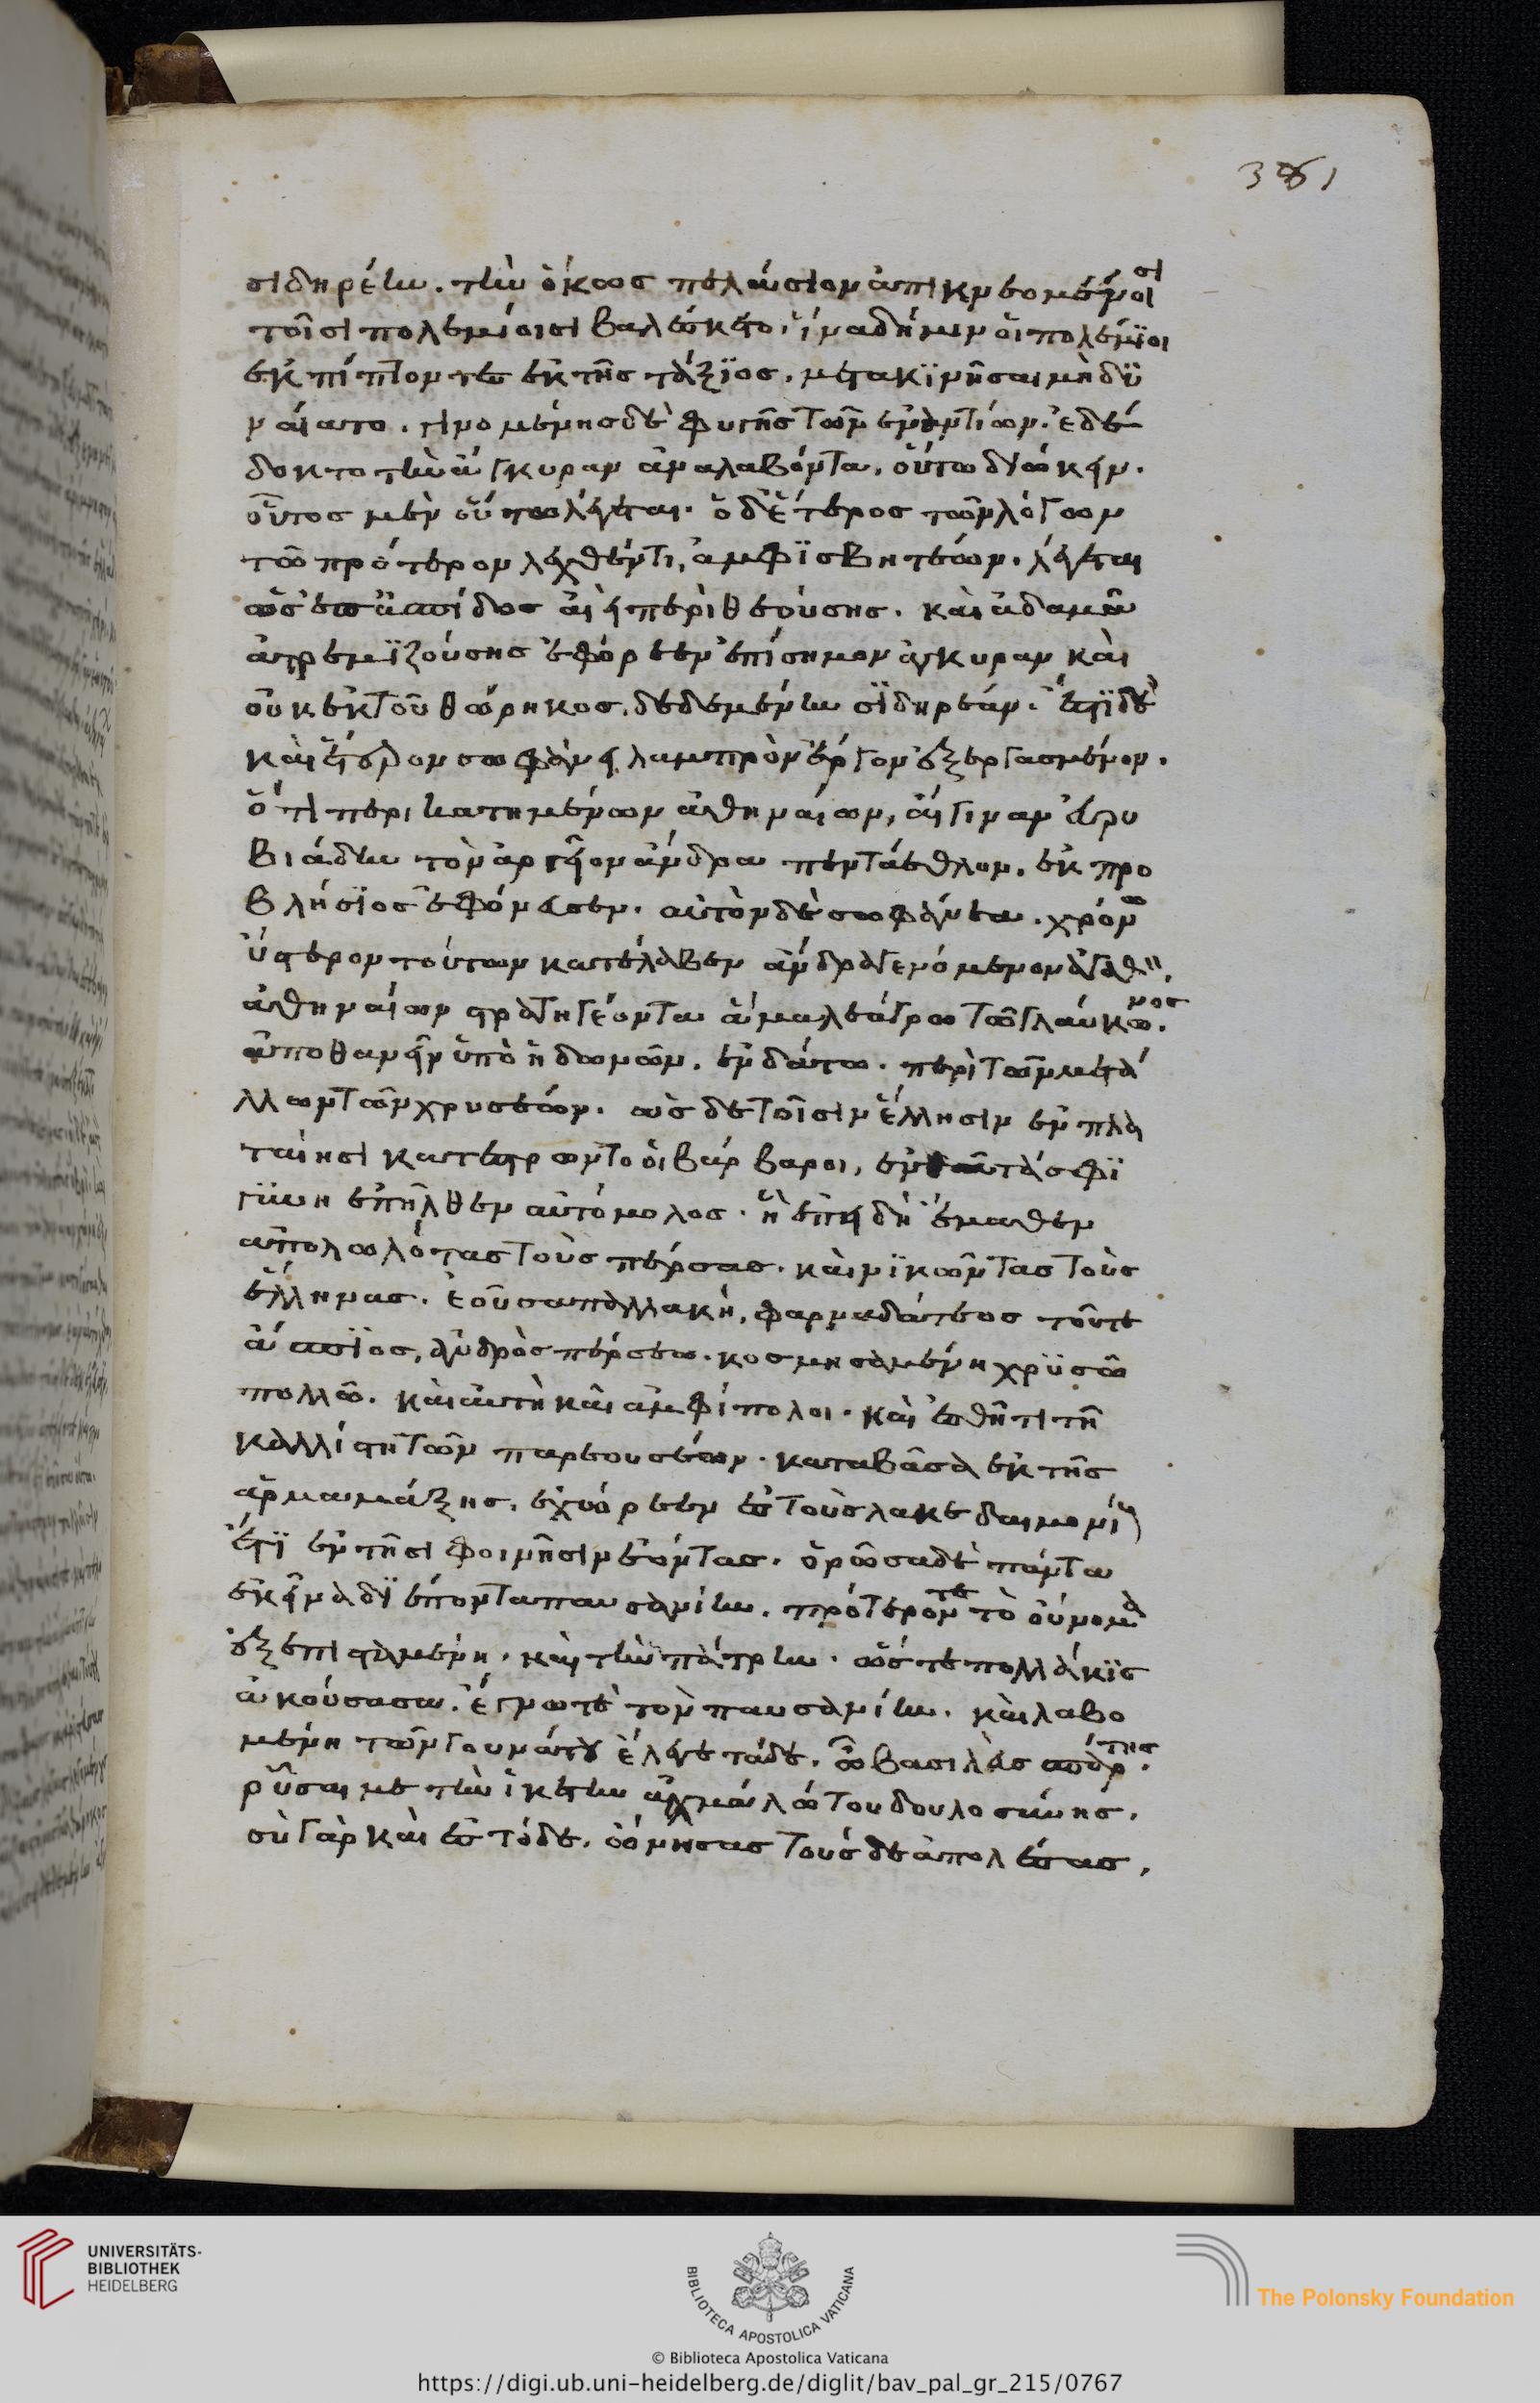 381
σιδηρέην. τὴν ὅκως πελάσειεν ἀπικνεομένοισι
τοῖσι πολεμίοισι βαλέσκετο, ἵνα δή μιν οἱ πολέμιοι
ἐκπίπτοντες ἐκ τῆς τάξιος, μετακινῆσαι μὴ δυ
ναίατο. γινομένης δὲ φυγῆς τῶν ἐναντίων. ἐδέ
δοκτο τὴν ἄγκυραν ἀναλαβόντα, οὕτω διώκειν.
οὗτος μὲν οὕτω λέγεται. ὁ δ' ἕτερος τῶν λόγων
τῶ πρότερον λεχθέντι, ἀμφισβητέων. λέγεται
ὡς ἐπ' ἀσπίδος αἰεὶ περιθεούσης. καὶ οὐδαμᾶ
ἀτρεμιζούσης ἐφόρεεν ἐπίσημον ἄγκυραν καὶ
οὐκ ἐκ τοῦ θώρηκος, δεδεμένην σιδηρέαν. ἔστι δὲ
καὶ ἕτερον σωφάνει λαμπρὸν ἔργον ἐξεργασμένον.
ὅτι περικατημένων ἀθηναίων, αἴγιναν εὐρυ
βιάδην τὸν ἀργεῖον ἄνδρα πεντάεθλον, ἐκ προ
βλήσιος ἐφόνευσεν. αὐτὸν δὲ σωφάνεα. χρόνω
ὕστερον τούτων κατέλαβεν ἄνδρα γενόμενον ἀγαθὸν,
ἀθηναίων στρατηγέοντα ἅμα λεάγρω τῶ γλαύκωνος.
ἀποθανεῖν ὑπὸ ἠδωνῶν, ἐν δάτω. περὶ τῶν μετά
λλων τῶν χρυσέων. ὡς δὲ τοῖσιν ἕλλησιν ἐν πλα
ταιῆσι κατέστρωντο οἱ βάρβαροι, ἐνθαῦτά σφι
γυνὴ ἐπῆλθεν αὐτόμολος. ἣ ἐπειδὴ ἔμαθεν
ἀπολωλότας τοὺς πέρσας. καὶ νικῶντας τοὺς
ἕλληνας. ἐοῦσα παλλακὴ, φαρναδάτεος τοῦ τε
άσπιος, ἀνδρὸς πέρσεω. κοσμησαμένη χρυσῶ
πολλῶ. καὶ αὐτὴ καὶ ἀμφίπολοι. καὶ ἐσθῆτι τῆ
καλλίστη τῶν παρεουσέων. καταβᾶσα ἐκ τῆς
ἁρμαμάξης, ἐχώρεεν ἐς τοὺς λακεδαιμονίους
ἔτι ἐν τῆσι φοινῆσιν ἐόντας. ὁρῶσα δὲ πάντα
ἐκεῖνα διέποντα παυσανίην. πρότερόν τε τὸ οὔνομα
ἐξεπισταμένη. καὶ τὴν πάτρην. ὥστε πολλάκις
ἀκούσασα. ἔγνω τε τὸν παυσανίην. καὶ λαβο
μένη τῶν γουνάτων ἔλεγε τάδε. ὦ βασιλεῦ σπάρτης.
ῥῦσαί με τὴν ἱκέτιν αἰχμαλώτου δουλοσύνης.
σὺ γὰρ καὶ ἐς τόδε. ὤνησας τούσδε ἀπολέσας,
UNIVERSITÄTS-
BIBLIOTHEK
HEIDELBERG
BIBLIOTECA APOSTOLICA VATICANA
The Polonsky Foundation
© Biblioteca Apostolica Vaticana
https://digi.ub.uni-heidelberg.de/diglit/bav_pal_gr_215/0767